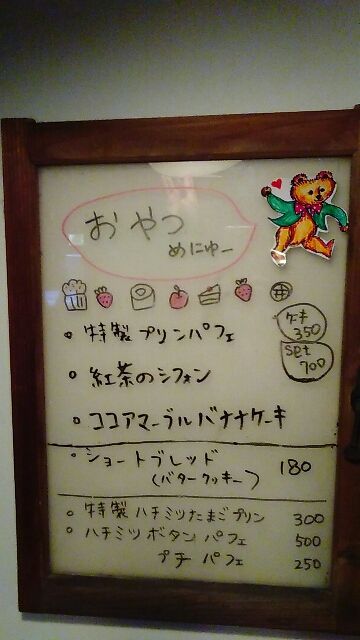 おやつ
めにゅー
ケーキ
350
set
700
。特製プリンパフェ
。紅茶のシフォン
。ココアマーブルバナナケーキ
。ショートブレッド 180
(バタークッキー)
。特製ハチミツたまごプリン 300
。ハチミツボタンパフェ 500
プチパフェ 250